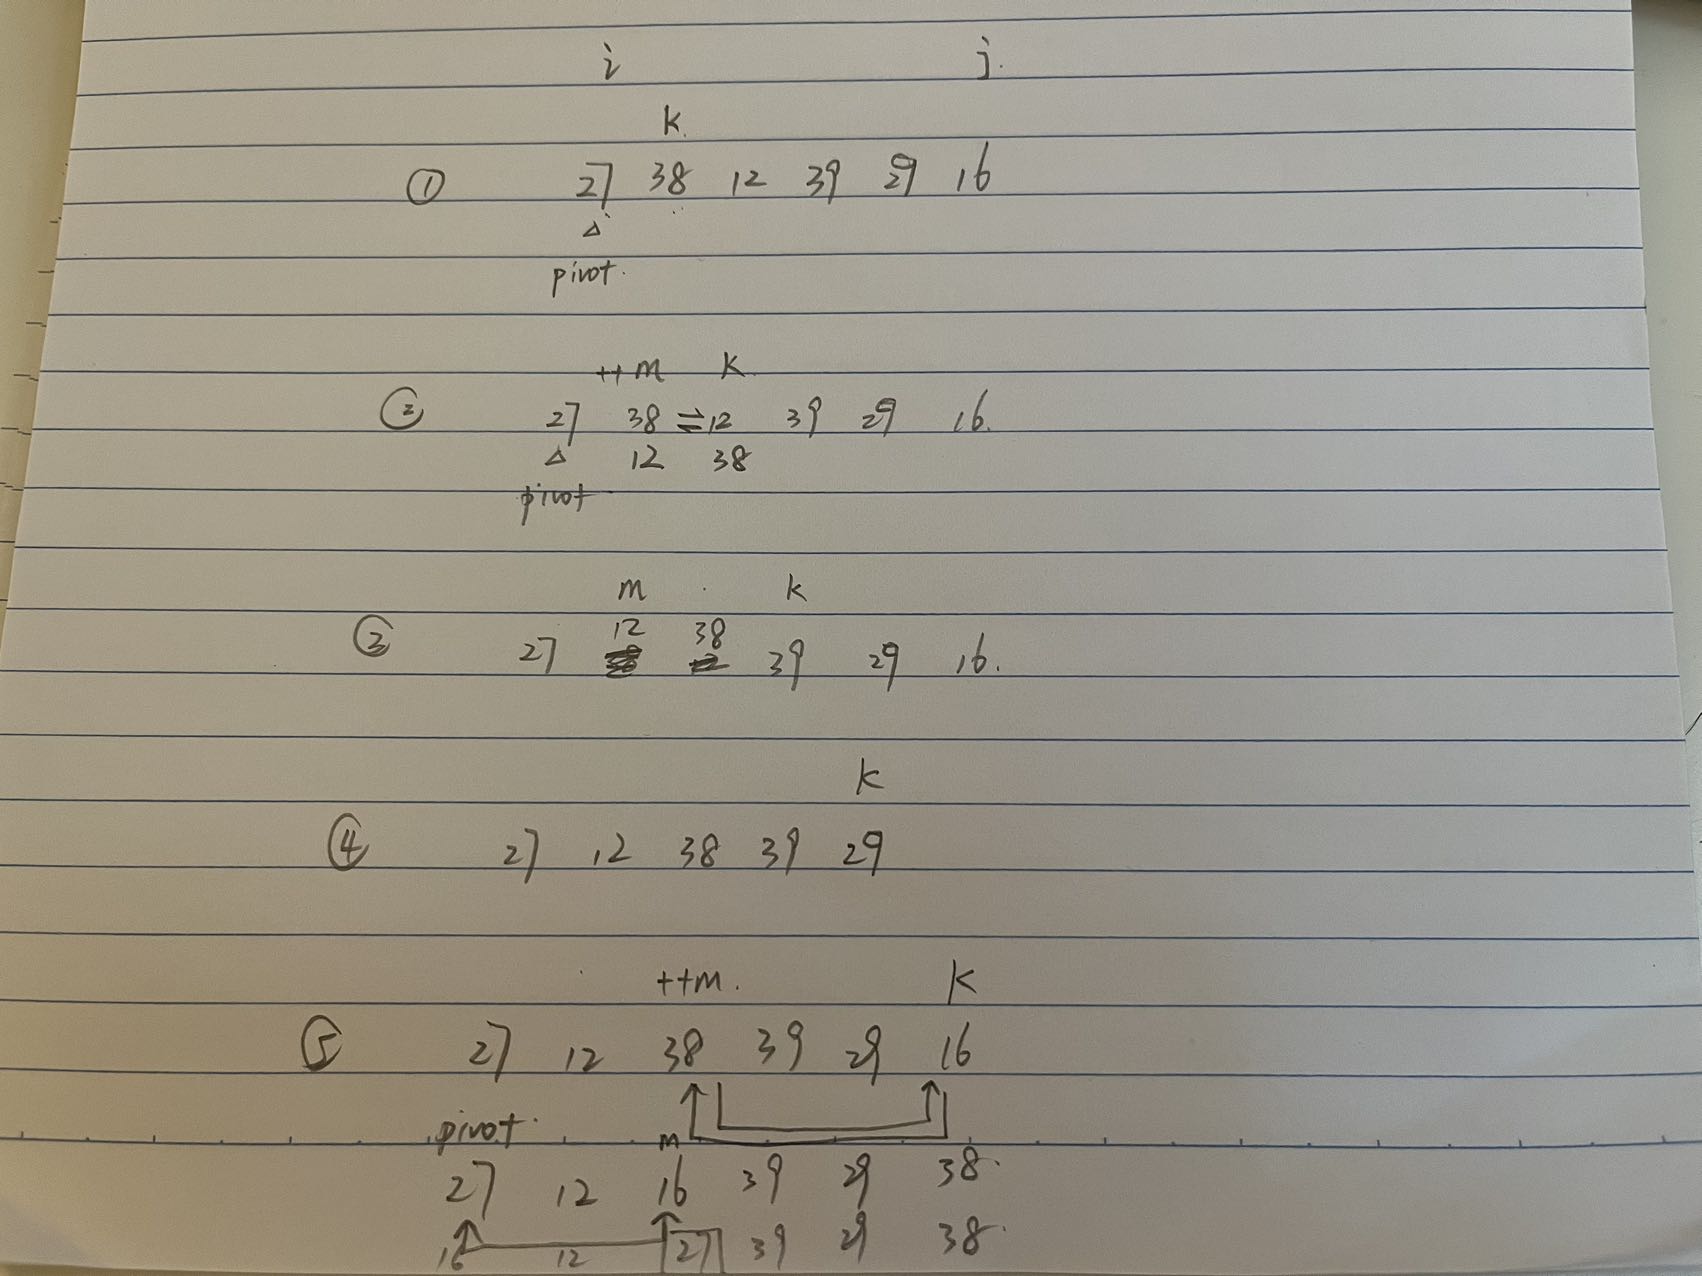 i j.
k.
① 27 38 12 39 29 16
△
pivot.
++m k
② 27 38 ⇌ 12 39 29 16.
△ 12 38
pivot
m k
12 38
③ 27 39 29 16.
k
④ 27 12 38 39 29
++m. k
⑤ 27 12 38 39 29 16
pivot. m
27 12 16 39 29 38.
16 12 27 39 29 38.